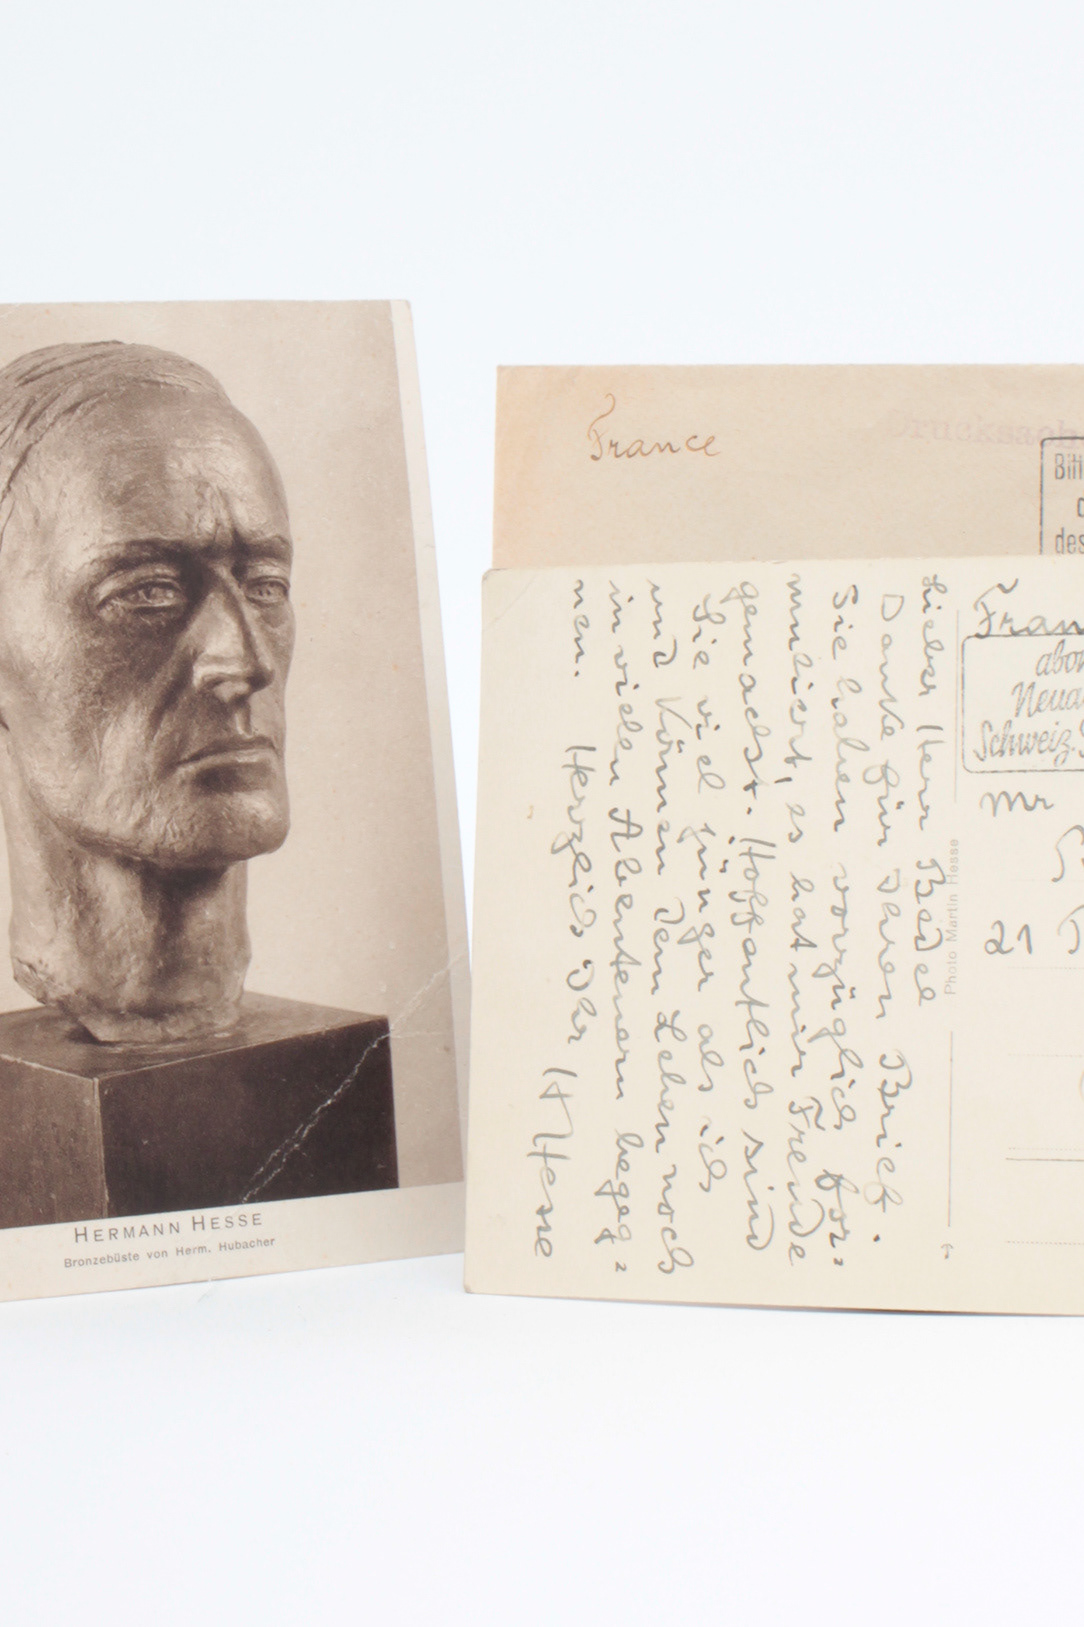 HERMANN HESSE
Bronzebüste von Herm. Hubacher
France
Drucksach
Bitt
des
Lieber Herr Bedel
Danke für Ihren Brief.
Sie haben vorzüglich for=
muliert, es hat mir Freude
gemacht. Hoffentlich sind
Sie viel jünger als ich
und können dem Leben noch
in vielen Abenteuern begeg=
nen. Herzlich Ihr H Hesse
Photo Martin Hesse
Fran
abon
Neua
Schweiz.
Mr
21